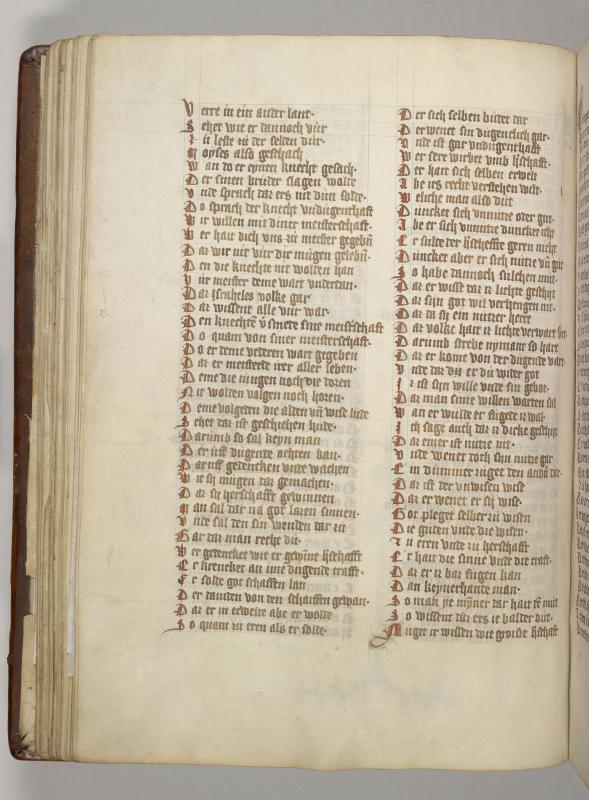 Verre in ein ander lant·
Sehet wie er dannoch vur
Zu leste zu der selden dur·
Moyses also geschach
Wan do er eynen knecht gesach·
Der sinen bruder slagen wolte
Vnde sprach daz ers nit dun solde·
Do sprach der knecht vndugenthaft
Wir willen nit diner meisterschaft·
Wer hait dich vns zu meister gegebn̄
Daz wir nit vur dir mugen gelebn̄·
Den die knechte nit wolden han
Vur meister deme wart vndertan·
Daz israheles volke gar
Daz wissent alle vur war·
Den knechtē v̄smete sine meist'schaft
Do quam von siner meisterschaft·
Do er deme vederen wart gegeben
Daz er meisterde irer aller leben·
Deme die iungen noch die doren
Nit wolden volgen noch horen·
Deme volgeden die alden vn̄ wise lude
Sehet daz ist geschiehen hude·
Darumb so sal keyn man
Der uff dugende achten kan·
Daruff gedencken vnde wachen
Wie sij mugen daz gemachen·
Daz sij herschafft gewinnen
Man sal dar na got lazen sinnen·
Vnde sal den sin wenden dar zu
Daz man rechte du·
Wer gedencket wie er gewinne h'schafft
Er krencket an ime dugende crafft·
Er solde got schaffen lan
Der danden von den schaiffen gewan·
Daz er in erwelte abe er wolde
So quam zu eren als er solde·
Der sich selben budet dar
Der wenet sin dugentlich gar·
Vnde ist gar vndugenthafft
Wer sere wirbet vmb h'schafft·
Der hait sich selben erwelt
Abe irs rechte verstehen welt·
Weliche man also dut
Duncket sich vnnutze oder gut·
Abe er sich vnnutze duncket icht
Er sulde der h'scheffte geren nicht
Duncket aber er sich nutze vn̄ gut
So habe dannoch sulchen mut·
Daz er wisse daz iz lichte geschijt
Daz sijn got wil verhengen nit·
Daz da sij ein nutzer herre
Daz volke hait iz lichte verwart
Darumb strebe nyman so hart
Daz er kome von der dugende vart·
Vnde daz du er du wider got
Iz ist sijn wille vnde sin gebot·
Daz man sime willen warten sal
Wan er wulde er fugede iz wal·
Ich sage auch daz iz dicke geschijt
Daz einer ist nutze nit·
Vnde wenet doch sijn nutze gar
Ein dummer zuget den andn̄ dar·
Daz ist der vnwisen wise
Daz er wenet er sij wise·
Got pleget selber zu wisen
Die guden vnde die wisen·
Zu eren vnde zu herschafft
Er hait die sinne vnde die craft·
Daz er iz baz fugen kan
Dan keynerhande man·
So mak ye myner dar hait
So wissent daz ers ie balder dut·
Muget ir wissen wie groisse h'schafft